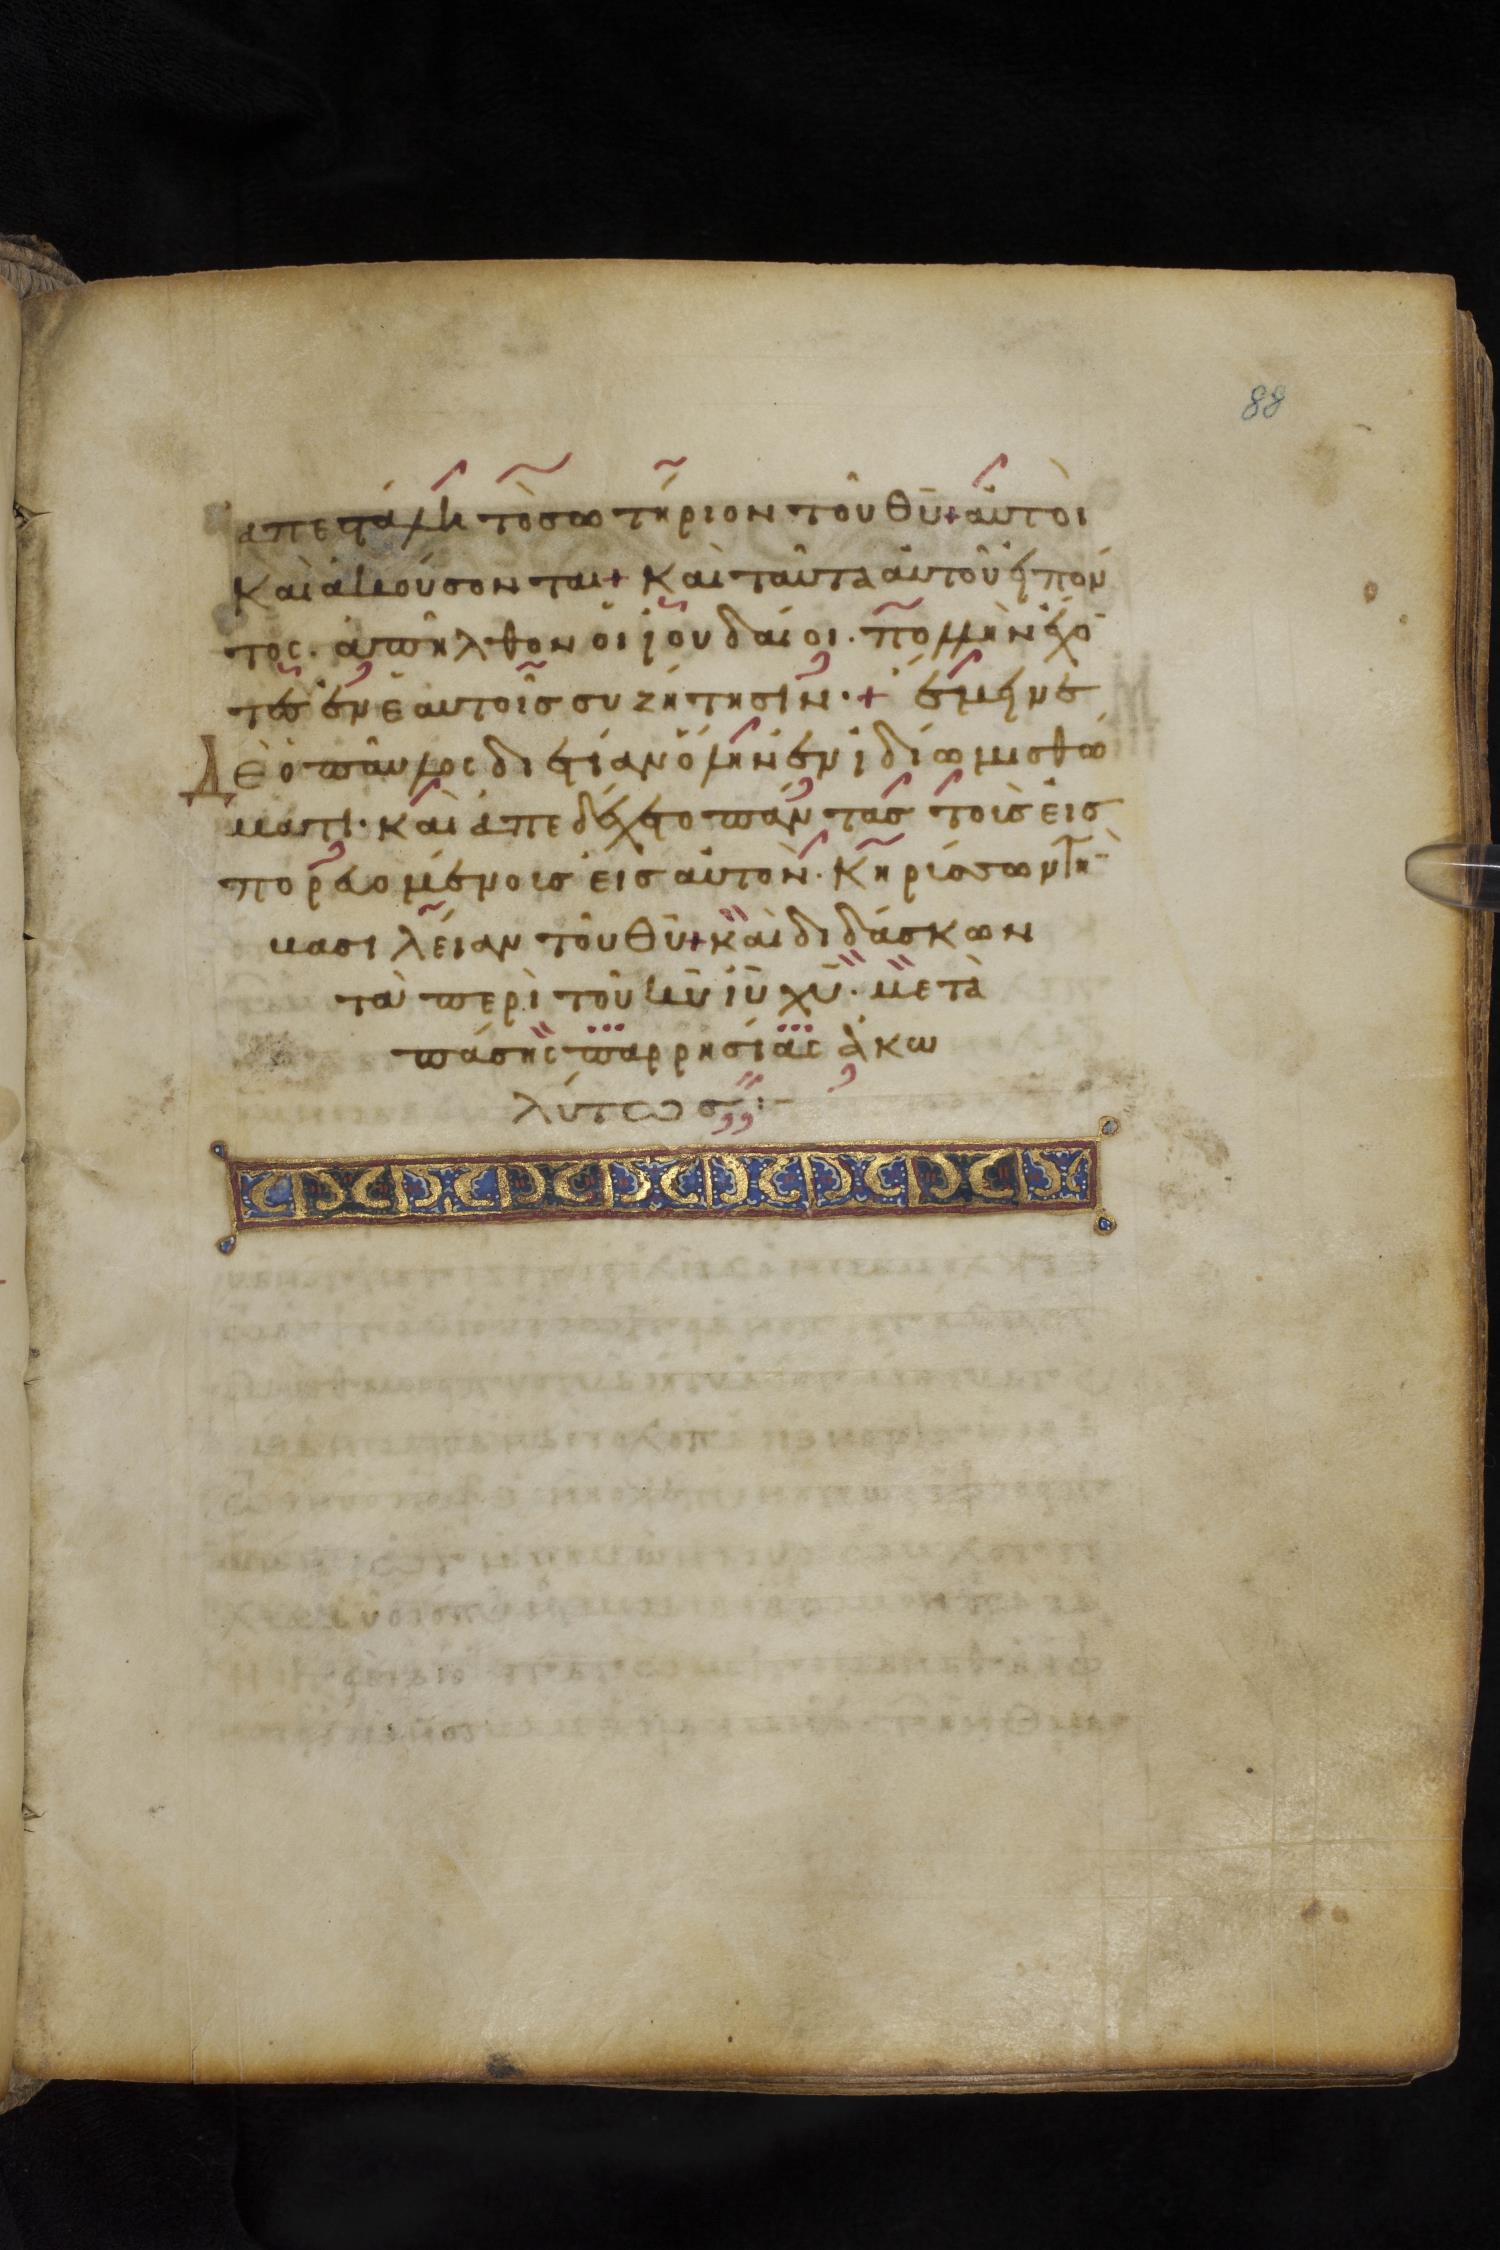 88
απεστάλη τὸ σωτήριον τοῦ θῦ + αὐτοὶ
καὶ ἀκούσονται + Καὶ ταῦτα αὐτοῦ εἰπόν
τος. ἀπῆλθον οἱ ἰουδαίοι. πολλὴν ἔχο
τες ἐν ἑαυτοῖς συζήτησιν. + ἔμεινε
Δὲ ὁ παῦλος διετίαν ὅλην ἐν ἰδίω μισθώ
ματι. καὶ ἀπεδέχετο πάντας τοὺς εἰσ
πορευομένους εἰς αὐτὸν. Κηρύσσων τὴ
βασιλείαν τοῦ θῦ + καὶ διδάσκων
τὰ περὶ τοῦ κῦ ἰῦ χῦ. μετὰ
πάσης παρρησίας ἀκω
λύτως :-